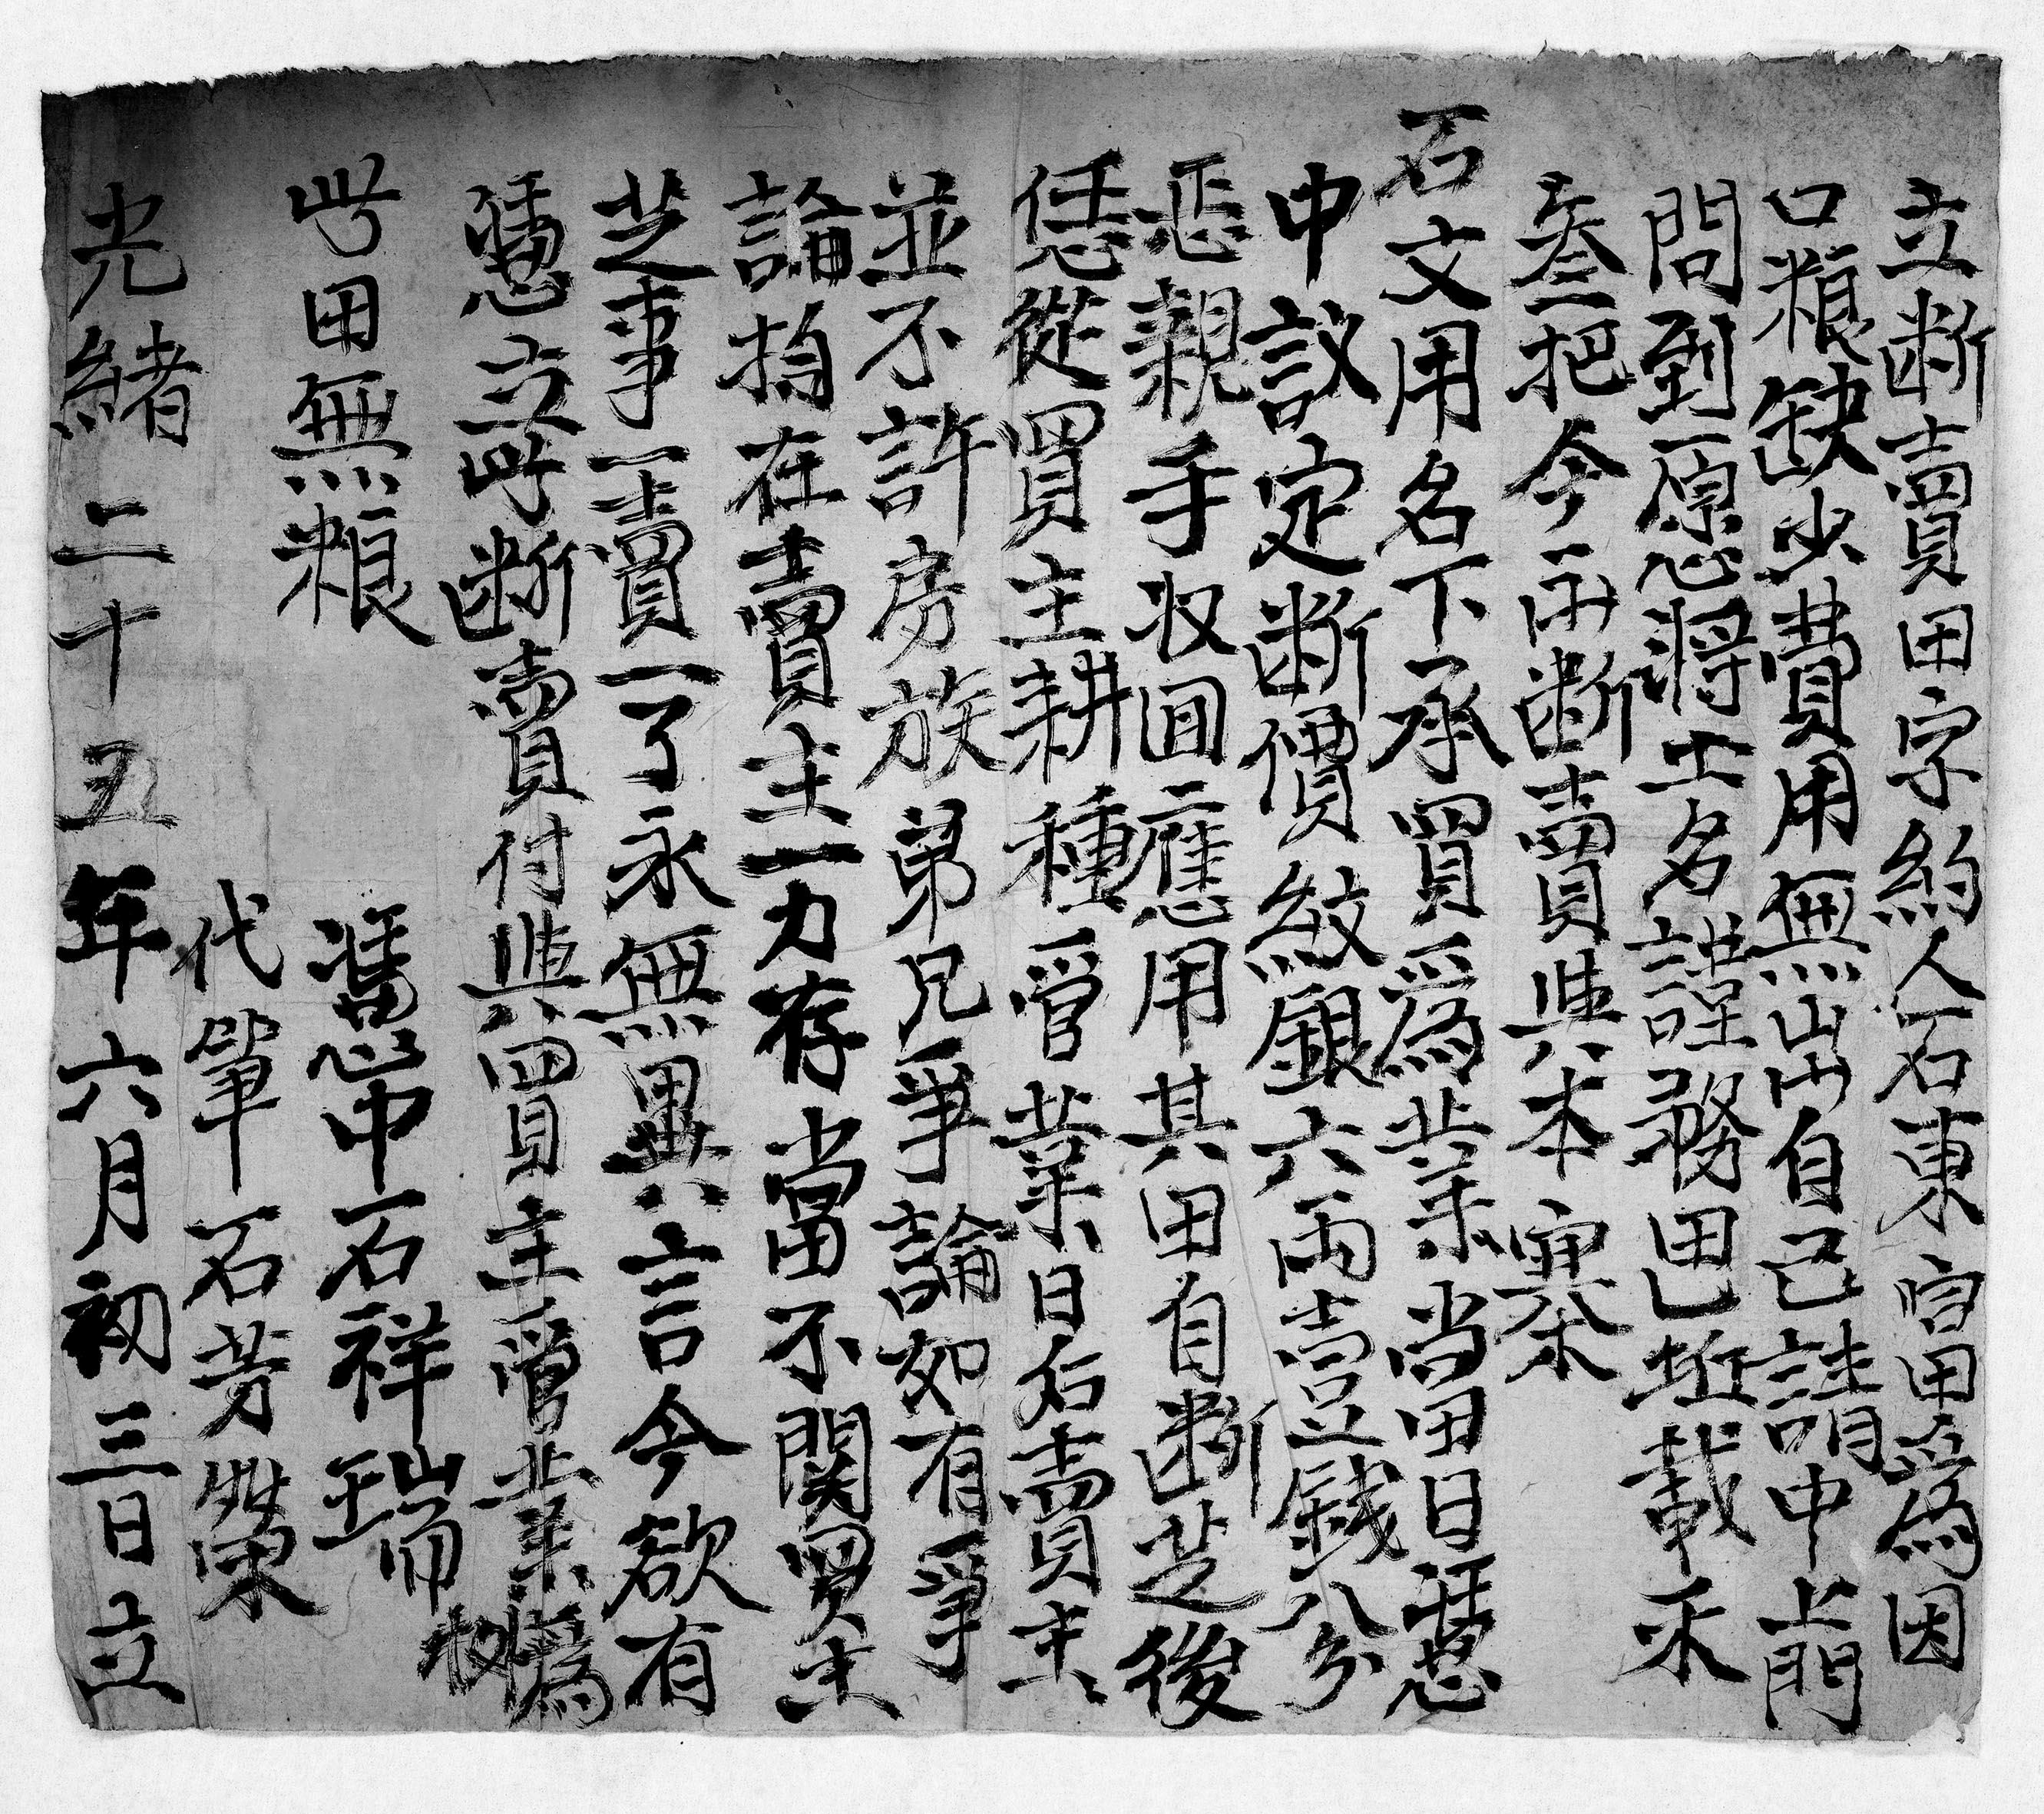 立断賣田字約人石東宫甲爲因
口粮缺少費用無出自己請中上門
問到原愿將土名謹務田坵載禾
叁把今来断賣與本寨
石文用名下承買爲業当田日凴
中議定断價紋銀六両壹錢八分
恶親手收回應用其田自断芝後
恁從買主耕種管業日后賣主
並不許房族弟兄爭論如有爭
論均在賣主一力存當不関買主
芝事一賣一了永無異言今欲有
憑立此断賣付與買主管業爲
此田無粮
憑中石祥瑞
代筆石芳榮
光緒二十五年六月初三日立